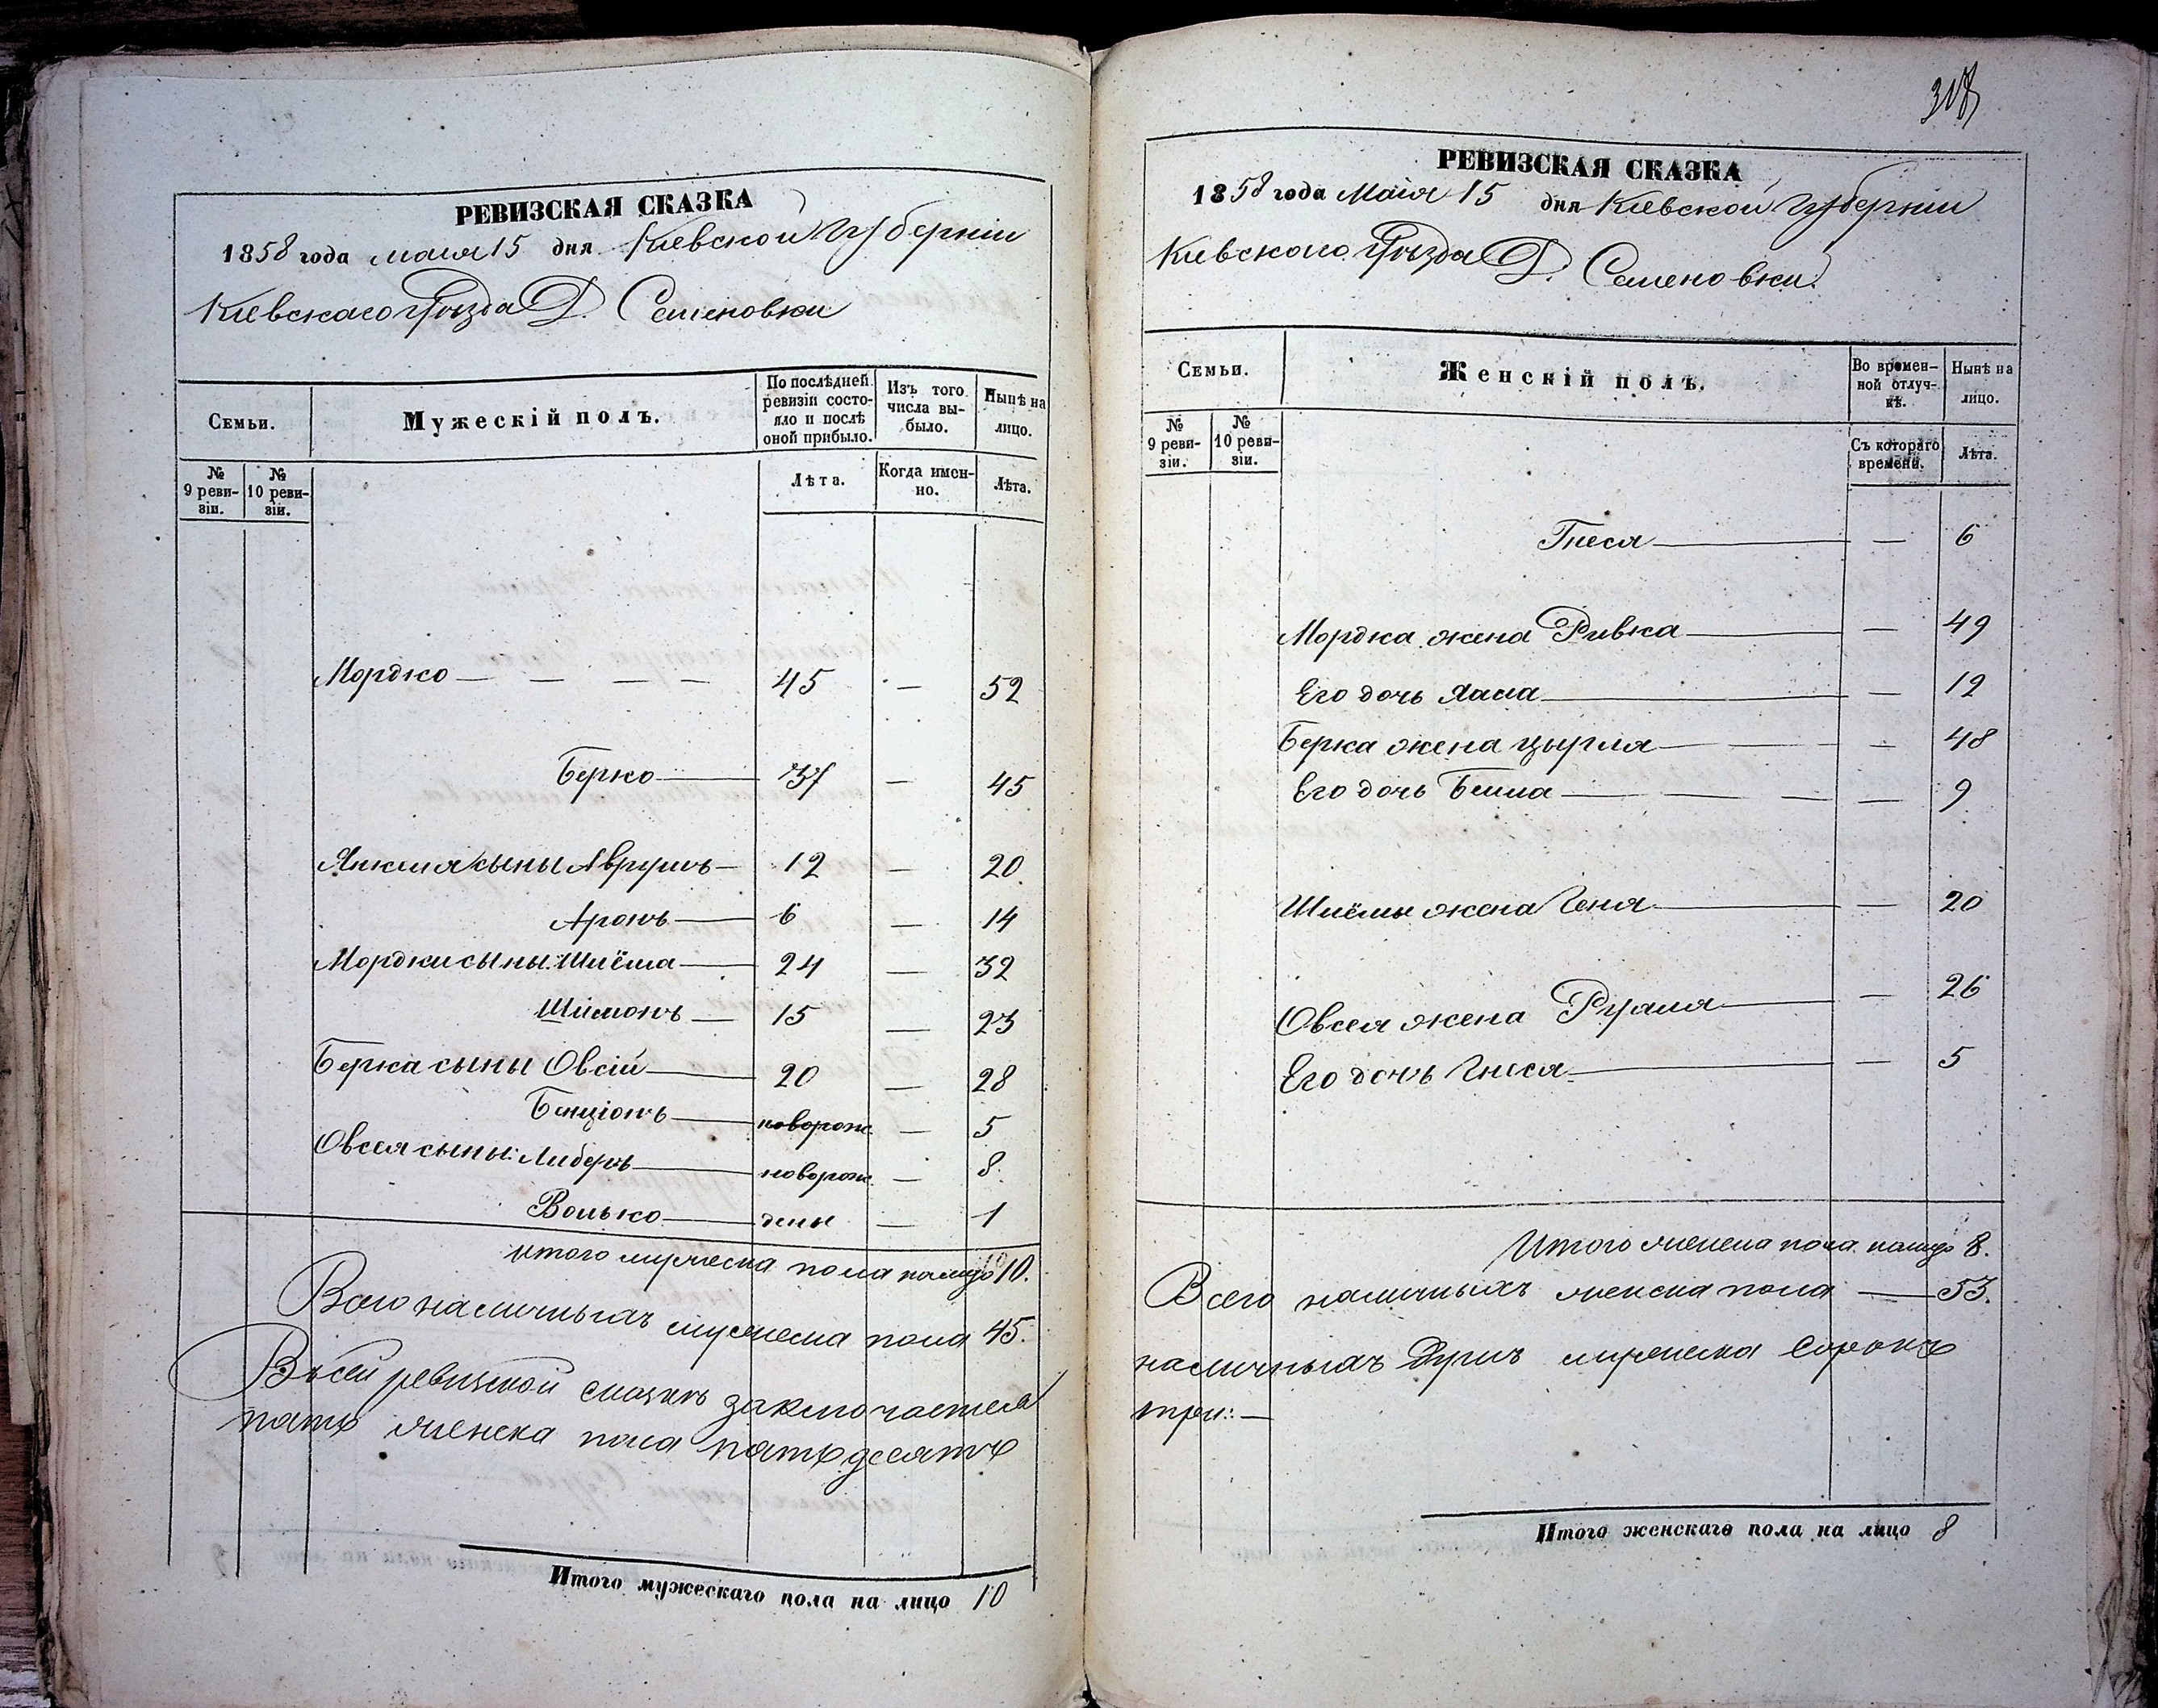 РЕВИЗСКАЯ СКАЗКА
1858 года маія 15 дня Кіевской Губерніи
Кіевскаго Уѣзда Д. Семеновки
Семьи.
Мужескій полъ.
По послѣдней ревизіи состояло и послѣ оной прибыло.
Изъ того числа выбыло.
Нынѣ на лицо.
№ 9 ревизіи.
№ 10 ревизіи.
Лѣта.
Когда именно.
Лѣта.
Мордко — — — — 45 — 52
Берко — 37 — 45
Янкеля сыны Аврумъ — 12 — 20
Аронъ — 6 — 14
Мордки сыны: Шлёма — 24 — 32
Шимонъ — 15 — 23
Берка сыны Овсій — 20 — 28
Бенціонъ — новорож. — 5
Овсея сыны: Либеръ — новорож. — 8.
Волько — дены — 1
итого мужеска пола налицо 10.
Всего наличныхъ мужеска пола 45.
Въ сей ревизской сказкѣ заключается
пять женска пола пятьдесятъ
Итого мужескаго пола на лицо 10
318
РЕВИЗСКАЯ СКАЗКА
1858 года Маія 15 дня Кіевской Губерніи
Кіевскаго Уѣзда Д. Семеновки.
Семьи.
Женскій полъ.
Во временной отлучкѣ.
Нынѣ на лицо.
№ 9 ревизіи.
№ 10 ревизіи.
Съ котораго времени.
Лѣта.
Гнеся — — 6
Мордка жена Ривка — — 49
Его дочь Хама — — 12
Берка жена Цырля — — 48
Его дочь Бейла — — — — 9
Шлёмы жена Геня — — 20
Овсея жена Рухля — — 26
Его дочь Гнеся — — 5
Итого женска пола налицо 8.
Всего наличныхъ женска пола — 53.
наличныхъ Душъ мужеска сорокъ
три: —
Итого женскаго пола на лицо 8